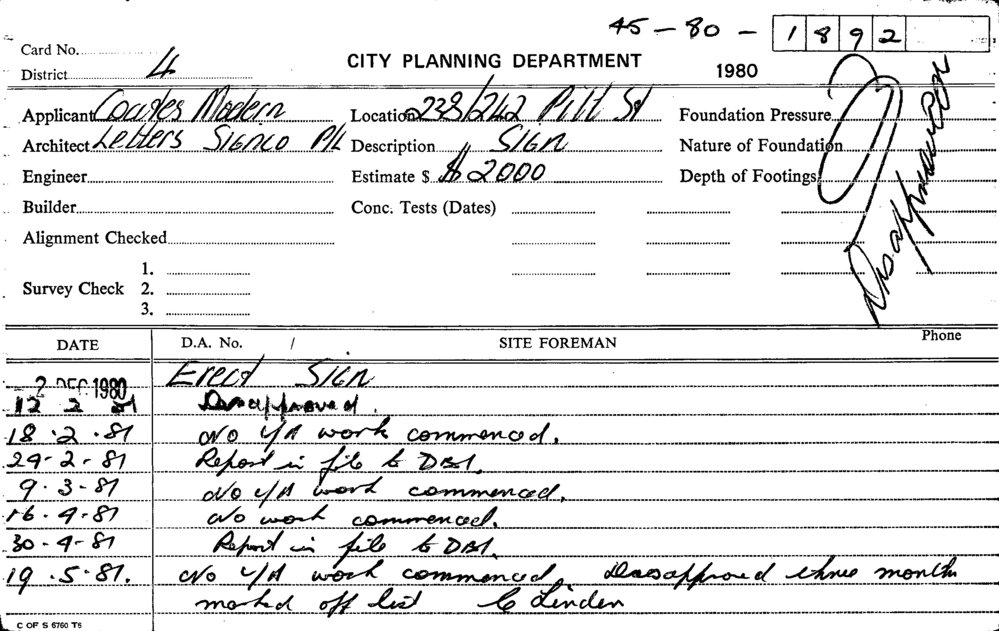 45 - 80 - 1892
Card No.
District 4
CITY PLANNING DEPARTMENT
1980
Applicant Coates Modern
Location 238/242 Pitt St
Foundation Pressure
Architect Letters Signco P/L
Description Sign
Nature of Foundation
Engineer
Estimate $ $2000
Depth of Footings
Disapproved
Builder
Conc. Tests (Dates)
Alignment Checked
Survey Check
1.
2.
3.
DATE
D.A. No. /
SITE FOREMAN
Phone
2 DEC 1980 Erect Sign
12 2 81 Disapproved.
18.2.81 No U/A work commenced.
29-2-81 Report in file to DBI.
9.3-81 No U/A work commenced.
16.4.81 No work commenced.
30-4-81 Report in file to DBI.
19.5.81. No U/A work commenced. Disapproved three months
marked off list C Linden
C OF S 6760 T6